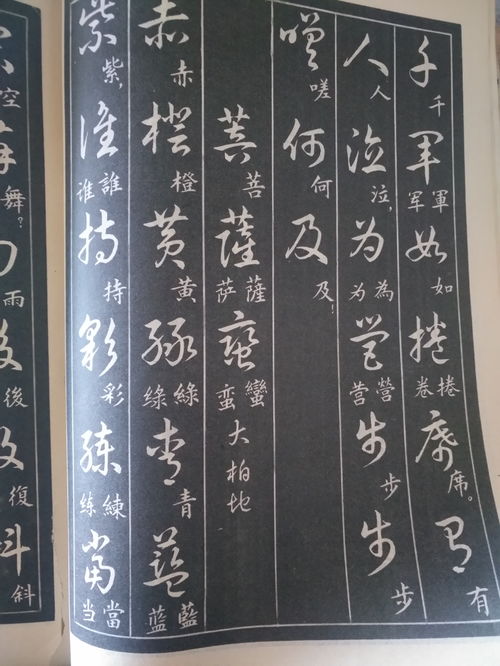 千軍如捲席有
千
軍军
如
捲卷
席。
有
人泣为營步步
人
泣,
為为
營营
步
步
嗟何及
嗟
何
及!
菩薩蠻
菩
薩萨
蠻蛮
大柏地
赤橙黃綠青藍
赤
橙
黄
綠绿
青
藍蓝
紫誰持彩練當
紫,
誰谁
持
彩
練练
當当
空
舞?
雨
後
復
斜